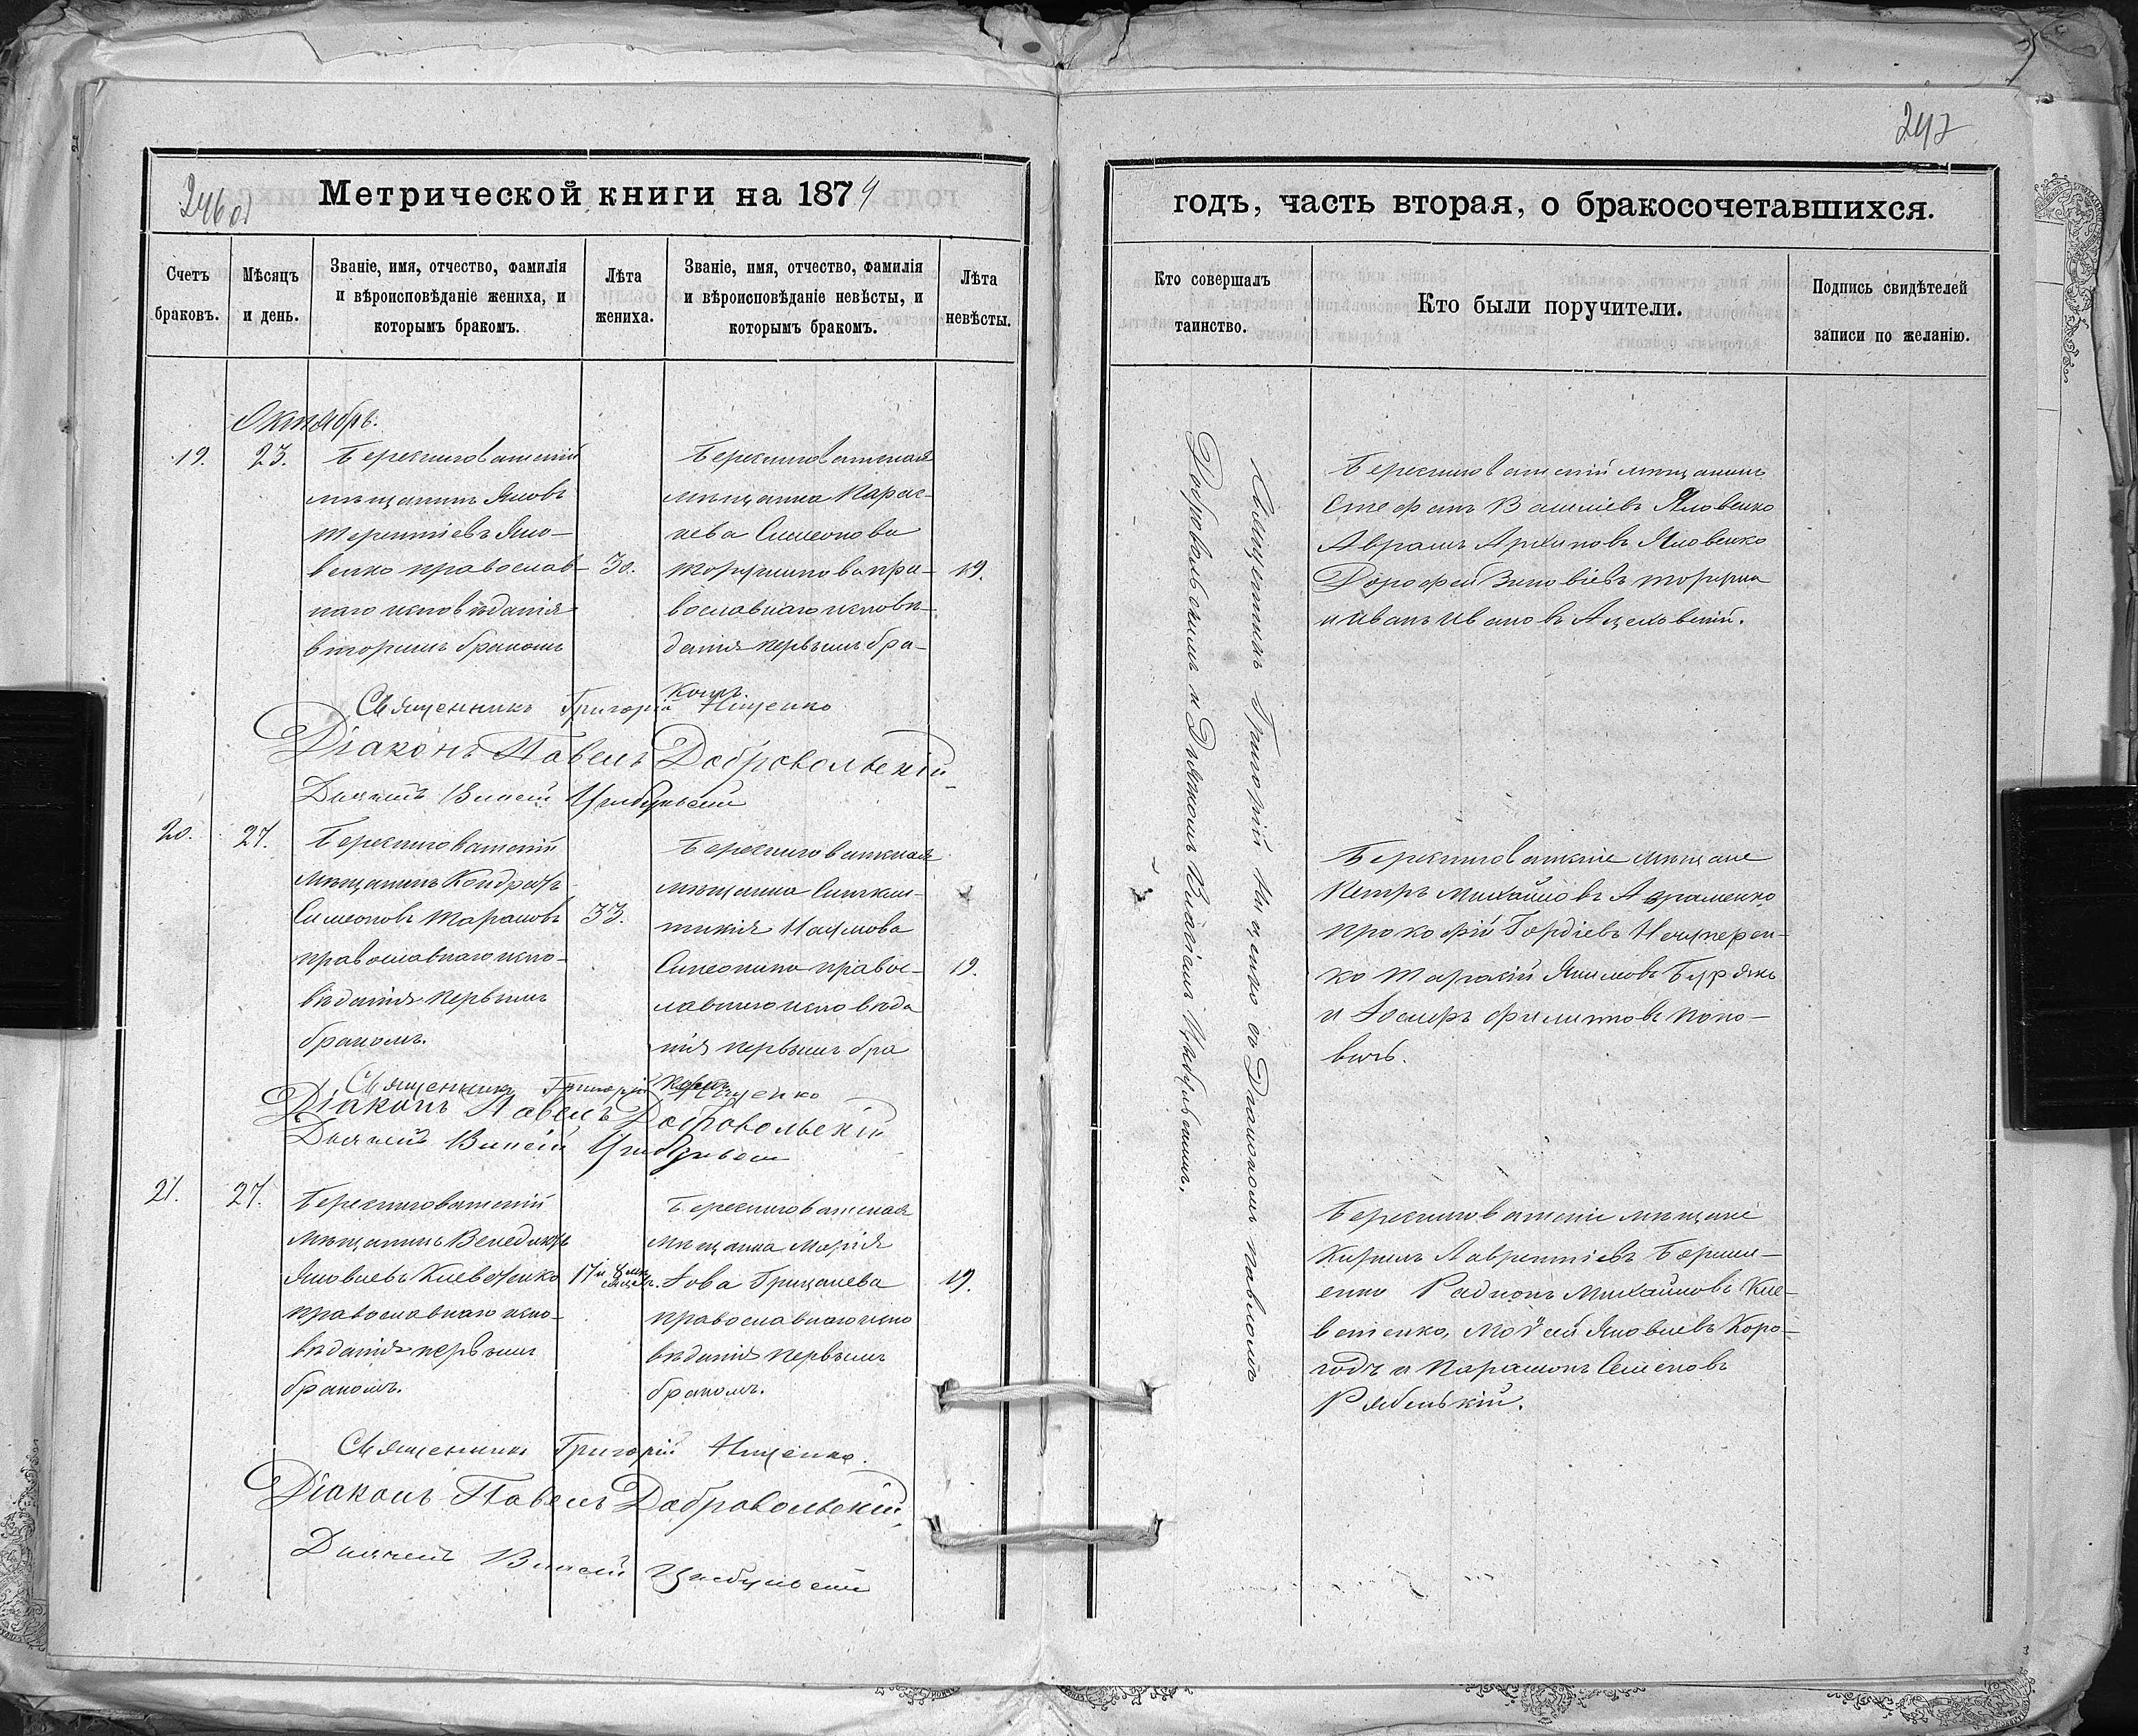 246 об
Метрической книги на 1874
Счетъ браковъ.
Мѣсяцъ и день.
Званіе, имя, отчество, фамилія
и вѣроисповѣданіе жениха, и
которымъ бракомъ.
Лѣта
жениха.
Званіе, имя, отчество, фамилія
и вѣроисповѣданіе невѣсты, и
которымъ бракомъ.
Лѣта
невѣсты.
Октябрь.
19.
23.
Берестоватскій
мѣщанинъ Яковъ
Терентіевъ Яко-
венко православ-
наго исповѣданія
вторымъ бракомъ
30.
Берестоватская
мѣщанка Парас-
кева Симеонова
православнаго исповѣ-
данія первымъ бра-
комъ.
19.
Священникъ Григорій Ищенко
Діаконъ Павелъ Добровольскій
Дьячекъ Власій Цибульскій
20.
27.
Берестоватскій
мѣщанинъ Кондратъ
Симеоновъ Тарановъ
православнаго испо-
вѣданія первымъ
бракомъ.
33.
Берестоватская
мѣщанка Синкли-
тикія Наумова
Симонина правос-
лавнаго исповѣда
нія первымъ бра
комъ
19.
Священникъ Григорій Ищенко
Діаконъ Павелъ Добровольскій
Дьячекъ Власій Цибульскій
21.
27.
Берестоватскій
мѣщанинъ Венедиктъ
Яковлевъ
православнаго испо-
вѣданія первымъ
бракомъ.
17 и 8 мѣ
сяцев.
Берестоватская
мѣщанка Марія
Іова Грицаева
православнаго испо
вѣданія первымъ
бракомъ.
19.
Священникъ Григорій Ищенко.
Діаконъ Павелъ Добровольскій,
Дьячекъ Власій Цибульскій
247
годъ, часть вторая, о бракосочетавшихся.
Кто совершалъ
таинство.
Кто были поручители.
Подпись свидѣтелей
записи по желанію.
Священникъ Григорій Ищенко со Діакономъ Павломъ
Добровольскимъ и Дьячкомъ Власіемъ Цибульскимъ.
Берестоватскій мѣщанинъ
Стефанъ Васильевъ Яковенко
Аврамъ Архиповъ Яковенко
Дорофей Зиновіевъ
и Иванъ Ивановъ
Берестоватскіе мѣщане
Петръ Михайловъ Авраменко
Прокофій Гордіевъ Нечиперен-
ко Тарасій Якимовъ Бурякъ
и Іосифъ Филиповъ Попо-
вичъ.
Берестоватскіе мѣщане
Кирилъ Лаврентіевъ
Радіонъ Михайловъ
Яковлевъ Коро-
годъ и Парамонъ Семеновъ
Рябенькій.